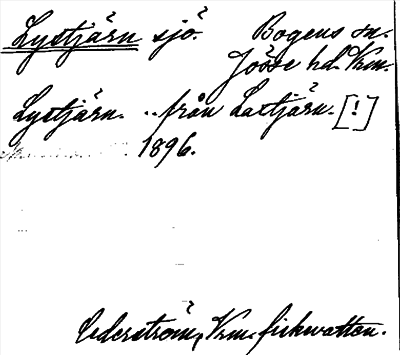 Lystjärn sjö? Bogens sn.
Jösse hd. Vrm.
Lystjärn. .. från Lastjärn. [!]
1896.
Cederström, Vrm. fiskvatten.